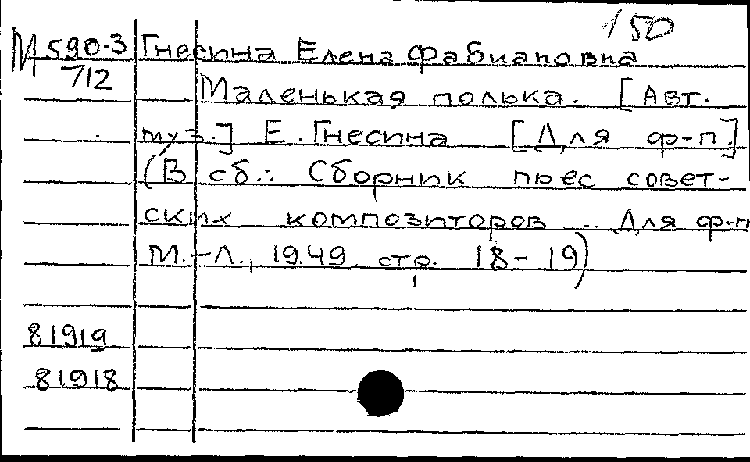 150
М 590-3 Гнесина Елена Фабиановна
712 Маленькая полька. [Авт.
муз.] Е. Гнесина [Для ф-п.]
(В сб.: Сборник пьес совет-
ских композиторов ... Для ф-п
М.-Л., 1949, стр. 18-19)
81919
81918